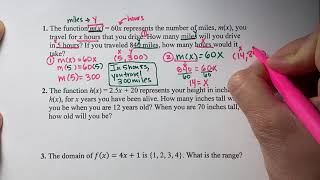 miles → y
hours
1. The function m(x) = 60x represents the number of miles, m(x), you
travel for x hours that you drive. How many miles will you drive
in 5 hours? If you traveled 840 miles, how many hours would it
take?
① m(x)=60x
m(5)=60(5)
m(5)=300
x y
(5,300)
In 5 hours,
you travel
300 miles
② m(x)=60x
840=60x
60 60
14=x
x
(14,8
2. The function h(x) = 2.5x + 20 represents your height in inches,
h(x), for x years you have been alive. How many inches tall will
you be when you are 12 years old? When you are 70 inches tall,
how old will you be?
3. The domain of f(x) = 4x + 1 is {1, 2, 3, 4}. What is the range?